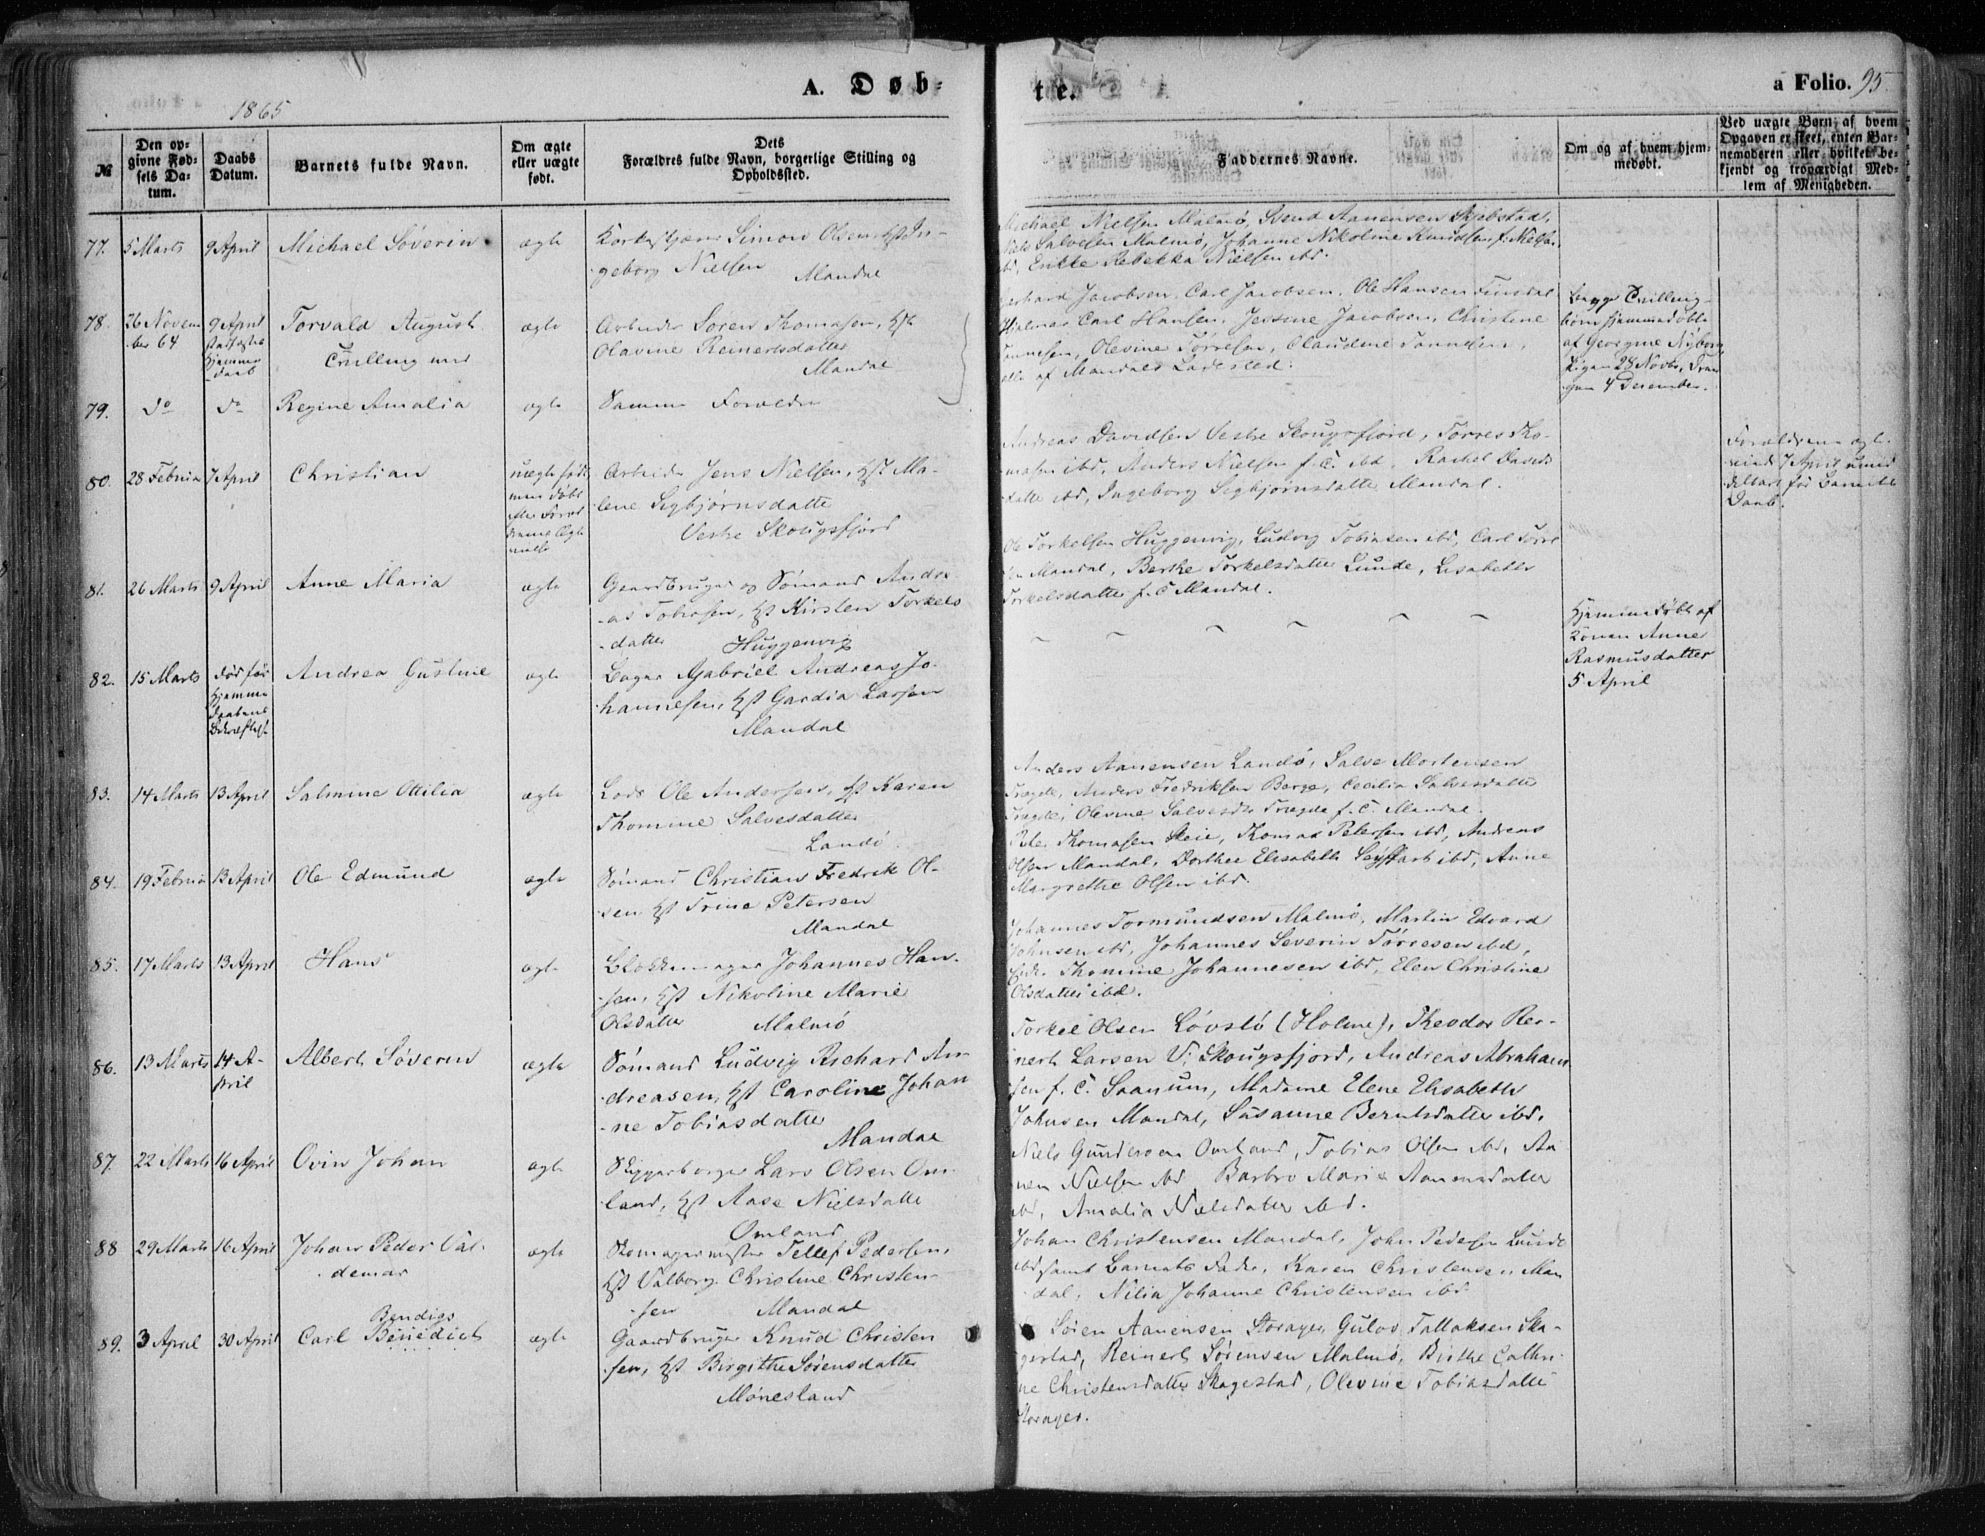 A. Døb-
te.
a Folio. 95
1865
№
Den op-
givne Fød-
sels Da-
tum.
Daabs
Datum.
Barnets fulde Navn.
Om ægte
eller uægte
født.
Dets
Forældres fulde Navn, borgerlige Stilling og
Opholdssted.
Faddernes Navne.
Om og af hvem hjem-
medøbt.
Ved uægte Børn, af hvem
Opgaven er skeet, enten Bar-
nemoderen eller hvilket be-
kjendt og troværdigt Med-
lem af Menigheden.
77. 5 Marts 9 April Michael Søverin ægte Simon Olsen, Hst In-
geborg Nielsen
Mandal
Michael Nielsen Malmø, Svend Aanensen Skjebstad,
Niels Salvesen Malmø, Johanne Nikoline Knudsen f. Nielsen
ibd, Enkke Rebekka Nielsen ibd.
78. 26 Novem
ber 64
9 April
stadfæstet
Hjemme
daab
Torvald August
Tvilling med
ægte
Arbeider Søren Thomasen, Hst
Olavine Reinertsdatter
Mandal
Gerhard Jacobsen, Carl Jacobsen, Ole Hansen Finsdal
Hjalmar Carl Hansen, Jessine Jacobsen, Christine
Tønnesen, Olevine Tørresen, Claudine Tønnesen,
alle af Mandals Ladested.
begge Tvilling-
børn hjemmedøbte
af Georgine Nyborg
Pigen 28 Novbr, Dren
gen 4 December.
79. do do Regine Amalia ægte Samme Forældre
80. 28 Februar 7 April Christian
uægte født
men døbt
efter Foræl
drenes Ægte
skab
Arbeider Jens Nielsen, Hst Ma-
lene Sigbjørnsdatter
Vestre Skougsfjord
Andreas Davidsen Vestre Skougsfjord, Tørres Tho-
masen ibd, Anders Nielsen f. C. ibd, Rachel Davids
datter ibd, Ingeborg Sigbjørnsdatter Mandal.
Forældrene ægte-
viede 7 April umid
delbart før Barnets
Daab.
81. 26 Marts 9 April Anne Maria ægte
Gaardbruger og Sømand Andre
as Tobiasen, Hst Kirsten Torkels
datter Huggenvig
Ole Torkelsen Huggenvig, Ludvig Tobiasen ibd, Carl Tørre
sen Mandal, Berthe Torkelsdatter Lunde, Lisabeth
Torkelsdatter f. C Mandal.
82. 15 Marts
død før
Hjemme
daabens
Bekræftelse
Andrea Gustine ægte
Bager Gabriel Andreas Jo-
hannesen, Hst Gardia Larsen
Mandal
Hjemmedøbt af
Konen Anne
Rasmusdatter
5 April
83. 14 Marts 13 April Salmine Ottilia ægte
Lods Ole Andersen, Hst Karen
Thomine Salvesdatter
Landø.
Anders Aanensen Landø, Salve Mortensen
Trægde, Anders Fredriksen Berge, Cecilia Salvesdatter
Trægde, Olevine Salvesdtr Trægde f. C. Mandal.
84. 19 Februar 13 April Ole Edmund ægte
Sømand Christian Fredrik Ol-
sen, Hst Trine Petersen
Mandal
Peder Thomasen Skeie, Thomas Petersen ibd, Andreas
Olsen Mandal, Dorthee Elisabeth Seyffart ibd, Anne
Margrethe Olsen ibd.
85. 17 Marts 13 April Hans ægte
Blokkemager Johannes Han-
sen, Hst Nikoline Marie
Olsdatter Malmø
Johannes Tormundsen Malmø, Martin Edvard
Johnsen ibd, Johannes Severin Tørresen ibd,
Enke Thomine Johannesen ibd, Elen Christine
Olsdatter ibd.
86. 13 Marts 14 A-
pril
Albert Søverin ægte
Sømand Ludvig Richard An-
dreasen, Hst Caroline Johan
ne Tobiasdatter
Mandal
Torkel Olsen Løvslø (Holme), Theodor Rei-
nert Larsen V. Skougsfjord, Andreas Abraham
sen f. C. Saanum, Madame Elene Elisabeth
Johnsen Mandal, Susanne Berntsdatter ibd.
87. 22 Marts 16 April Ovin Johan ægte
Skiggerborger Lars Olsen Om-
land, Hst Aase Nielsdatter
Omland
Niels Gundersen Omland, Tobias Olsen ibd, Aa
nen Nielsen ibd, Barbro Marie Aanensdatter
ibd, Amalia Nielsdatter ibd.
88 29 Marts 16 April Johan Peder Val-
demar
ægte
Skomagermester Tellef Pedersen,
Hst Valborg Christine Christen-
sen Mandal
Johan Christensen Mandal, John Pedersen Lunde
ibd samt Barnets Fader, Karen Christensen Man
dal, Nilia Johanne Christensen ibd
89. 3 April 30 April Carl Benedict
Bendigs
ægte
Gaardbruger Knud Christen
sen, Hst Birgithe Sørensdatter
Mønesland
Søren Aanensen Storager, Gulov Tallaksen Ska-
gestad, Reinert Sørensen Malmø, Birthe Cathri-
ne Christensdatter Skagestad, Olevine Tobiasdatter
Storager.